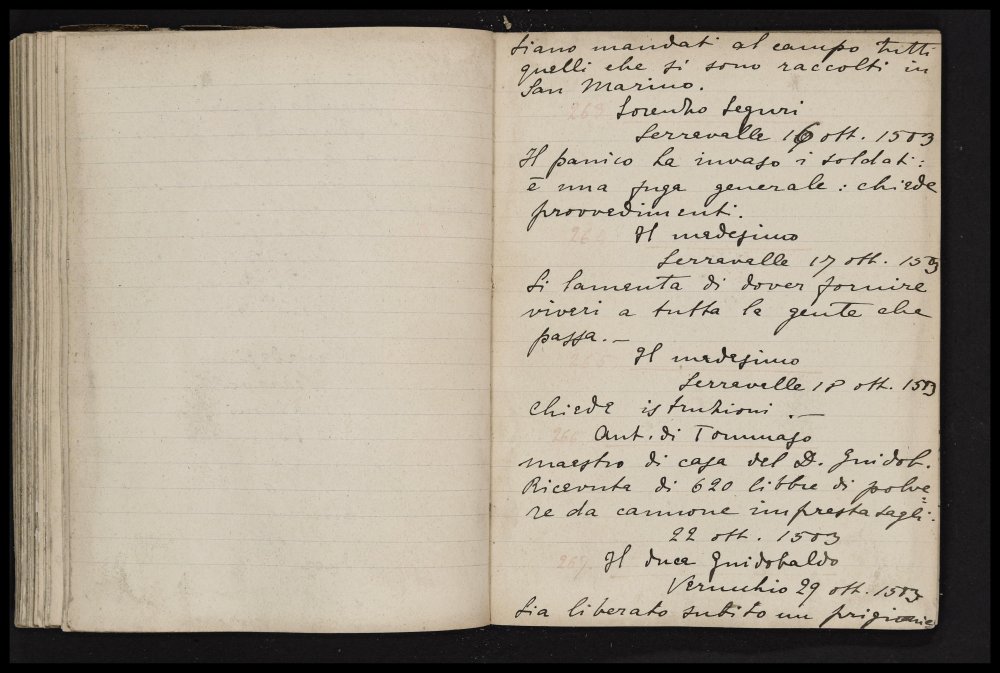 siano mandati al campo tutti
quelli che si sono raccolti in
San Marino.
263 Lorenzo Seguri
Serravalle 16 ott. 1503
Il panico ha invaso i soldati:
è una fuga generale: chiede
provvedimenti.
264 Il medesimo
Serravalle 17 ott. 1503
Si lamenta di dover fornire
viveri a tutta la gente che
passa. —
Il medesimo
Serravalle 18 ott. 1503
Chiede istruzioni. —
266 Ant. di Tommaso
maestro di casa del D. Guidob.
Ricevuta di 620 libbre di polve=
re da cannone imprestatagli.
22 ott. 1503
267 Il duca Guidobaldo
Verucchio 29 ott. 1503
Sia liberato subito un prigionie